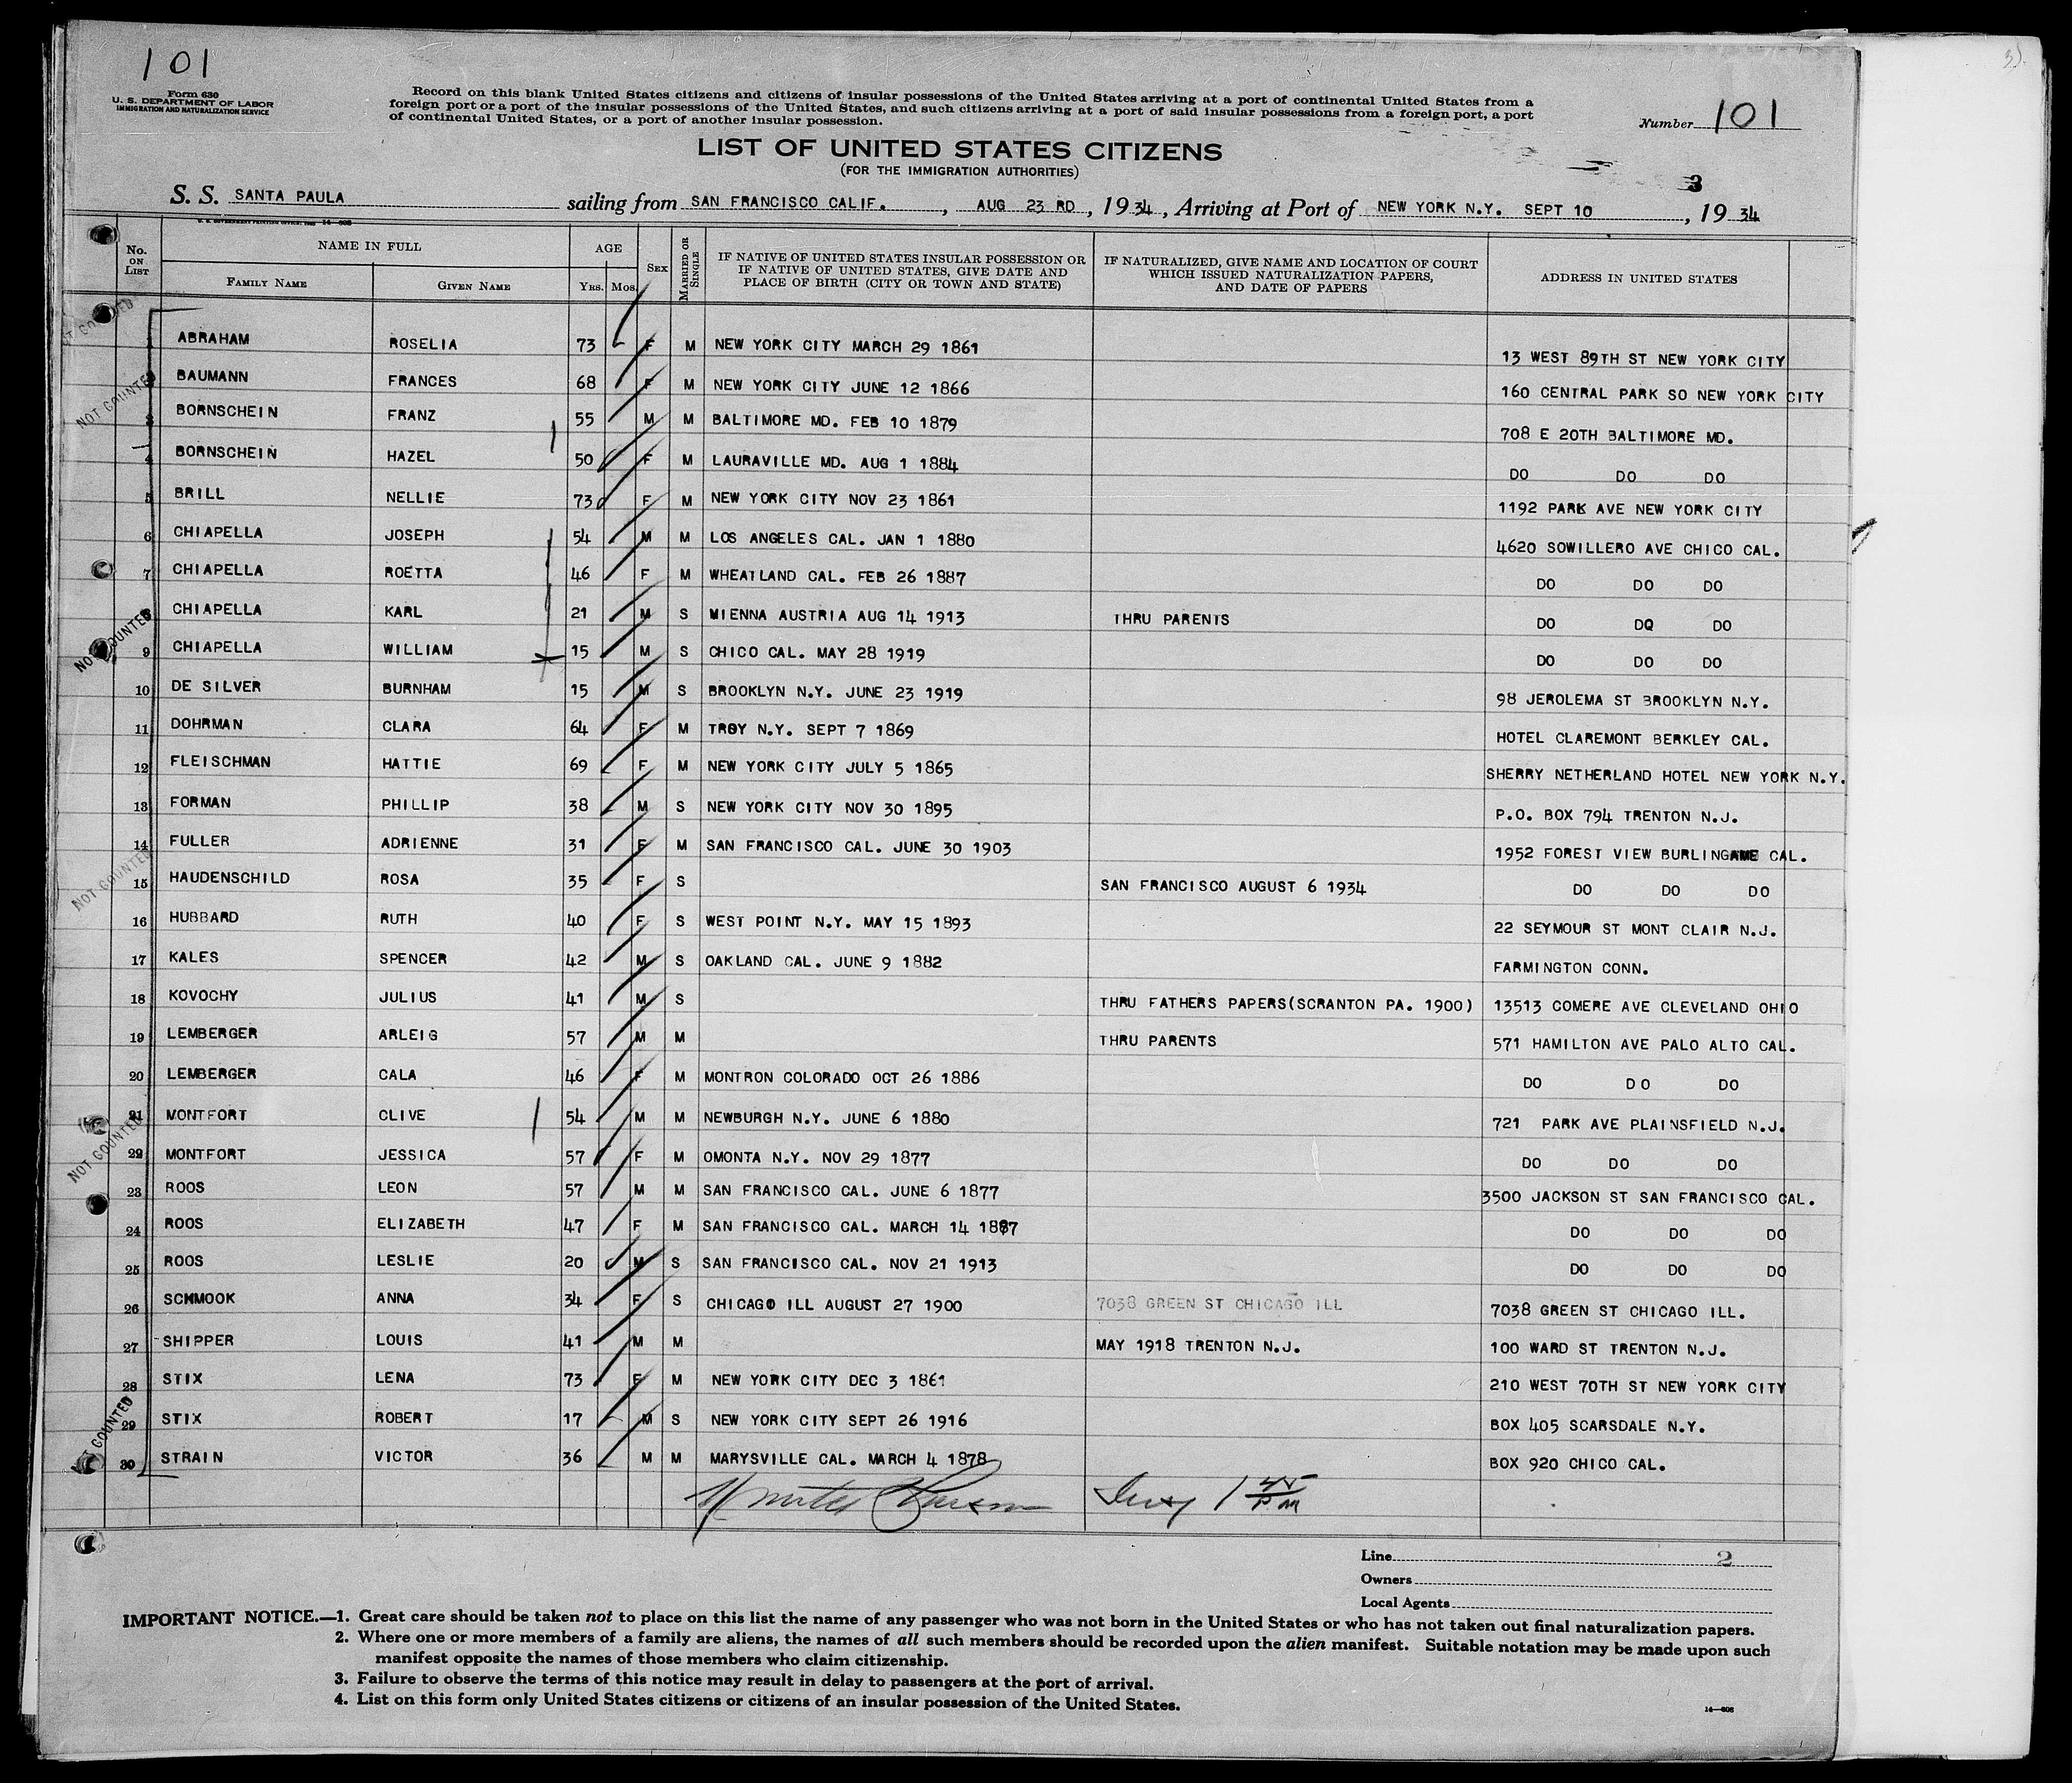 101
Form 630
U. S. DEPARTMENT OF LABOR
IMMIGRATION AND NATURALIZATION SERVICE
Record on this blank United States citizens and citizens of insular possessions of the United States arriving at a port of continental United States from a
foreign port or a port of the insular possessions of the United States, and such citizens arriving at a port of said insular possessions from a foreign port, a port
of continental United States, or a port of another insular possession.
Number 101
LIST OF UNITED STATES CITIZENS
(FOR THE IMMIGRATION AUTHORITIES)
3
S. S. SANTA PAULA sailing from SAN FRANCISCO CALIF. , AUG 23 RD , 1934 , Arriving at Port of NEW YORK N.Y. SEPT 10 , 1934
No. ON LIST NAME IN FULL FAMILY NAME GIVEN NAME AGE YRS. MOS. SEX MARRIED OR SINGLE IF NATIVE OF UNITED STATES INSULAR POSSESSION OR IF NATIVE OF UNITED STATES, GIVE DATE AND PLACE OF BIRTH (CITY OR TOWN AND STATE) IF NATURALIZED, GIVE NAME AND LOCATION OF COURT WHICH ISSUED NATURALIZATION PAPERS, AND DATE OF PAPERS ADDRESS IN UNITED STATES
1 ABRAHAM ROSELIA 73 F M NEW YORK CITY MARCH 29 1861 13 WEST 89TH ST NEW YORK CITY
2 BAUMANN FRANCES 68 F M NEW YORK CITY JUNE 12 1866 160 CENTRAL PARK SO NEW YORK CITY
3 BORNSCHEIN FRANZ 55 M M BALTIMORE MD. FEB 10 1879 708 E 20TH BALTIMORE MD.
4 BORNSCHEIN HAZEL 50 F M LAURAVILLE MD. AUG 1 1884 DO DO DO
5 BRILL NELLIE 73 F M NEW YORK CITY NOV 23 1861 1192 PARK AVE NEW YORK CITY
6 CHIAPELLA JOSEPH 54 M M LOS ANGELES CAL. JAN 1 1880 4620 SOWILLERO AVE CHICO CAL.
7 CHIAPELLA ROETTA 46 F M WHEATLAND CAL. FEB 26 1887 DO DO DO
8 CHIAPELLA KARL 21 M S VIENNA AUSTRIA AUG 14 1913 THRU PARENTS DO DO DO
9 CHIAPELLA WILLIAM 15 M S CHICO CAL. MAY 28 1919 DO DO DO
10 DE SILVER BURNHAM 15 M S BROOKLYN N.Y. JUNE 23 1919 98 JEROLEMA ST BROOKLYN N.Y.
11 DOHRMAN CLARA 64 F M TROY N.Y. SEPT 7 1869 HOTEL CLAREMONT BERKLEY CAL.
12 FLEISCHMAN HATTIE 69 F M NEW YORK CITY JULY 5 1865 SHERRY NETHERLAND HOTEL NEW YORK N.Y.
13 FORMAN PHILLIP 38 M S NEW YORK CITY NOV 30 1895 P.O. BOX 794 TRENTON N.J.
14 FULLER ADRIENNE 31 F M SAN FRANCISCO CAL. JUNE 30 1903 1952 FOREST VIEW BURLINGAME CAL.
15 HAUDENSCHILD ROSA 35 F S SAN FRANCISCO AUGUST 6 1934 DO DO DO
16 HUBBARD RUTH 40 F S WEST POINT N.Y. MAY 15 1893 22 SEYMOUR ST MONT CLAIR N.J.
17 KALES SPENCER 42 M S OAKLAND CAL. JUNE 9 1882 FARMINGTON CONN.
18 KOVOCHY JULIUS 41 M S THRU FATHERS PAPERS(SCRANTON PA. 1900) 13513 COMERE AVE CLEVELAND OHIO
19 LEMBERGER ARLEIG 57 M M THRU PARENTS 571 HAMILTON AVE PALO ALTO CAL.
20 LEMBERGER CALA 46 F M MONTRON COLORADO OCT 26 1886 DO DO DO
21 MONTFORT CLIVE 54 M M NEWBURGH N.Y. JUNE 6 1880 721 PARK AVE PLAINSFIELD N.J.
22 MONTFORT JESSICA 57 F M OMONTA N.Y. NOV 29 1877 DO DO DO
23 ROOS LEON 57 M M SAN FRANCISCO CAL. JUNE 6 1877 3500 JACKSON ST SAN FRANCISCO CAL.
24 ROOS ELIZABETH 47 F M SAN FRANCISCO CAL. MARCH 14 1887 DO DO DO
25 ROOS LESLIE 20 M S SAN FRANCISCO CAL. NOV 21 1913 DO DO DO
26 SCHMOOK ANNA 34 F S CHICAGO ILL AUGUST 27 1900 7038 GREEN ST CHICAGO ILL 7038 GREEN ST CHICAGO ILL.
27 SHIPPER LOUIS 41 M M MAY 1918 TRENTON N.J. 100 WARD ST TRENTON N.J.
28 STIX LENA 73 F M NEW YORK CITY DEC 3 1861 210 WEST 70TH ST NEW YORK CITY
29 STIX ROBERT 17 M S NEW YORK CITY SEPT 26 1916 BOX 405 SCARSDALE N.Y.
30 STRAIN VICTOR 36 M M MARYSVILLE CAL. MARCH 4 1878 BOX 920 CHICO CAL.
NOT COUNTED
NOT COUNTED
NOT COUNTED
NOT COUNTED
NOT COUNTED
NOT COUNTED
1 45 PM
Line 2
Owners
Local Agents
IMPORTANT NOTICE.—1. Great care should be taken not to place on this list the name of any passenger who was not born in the United States or who has not taken out final naturalization papers.
2. Where one or more members of a family are aliens, the names of all such members should be recorded upon the alien manifest. Suitable notation may be made upon such
manifest opposite the names of those members who claim citizenship.
3. Failure to observe the terms of this notice may result in delay to passengers at the port of arrival.
4. List on this form only United States citizens or citizens of an insular possession of the United States.
14—608